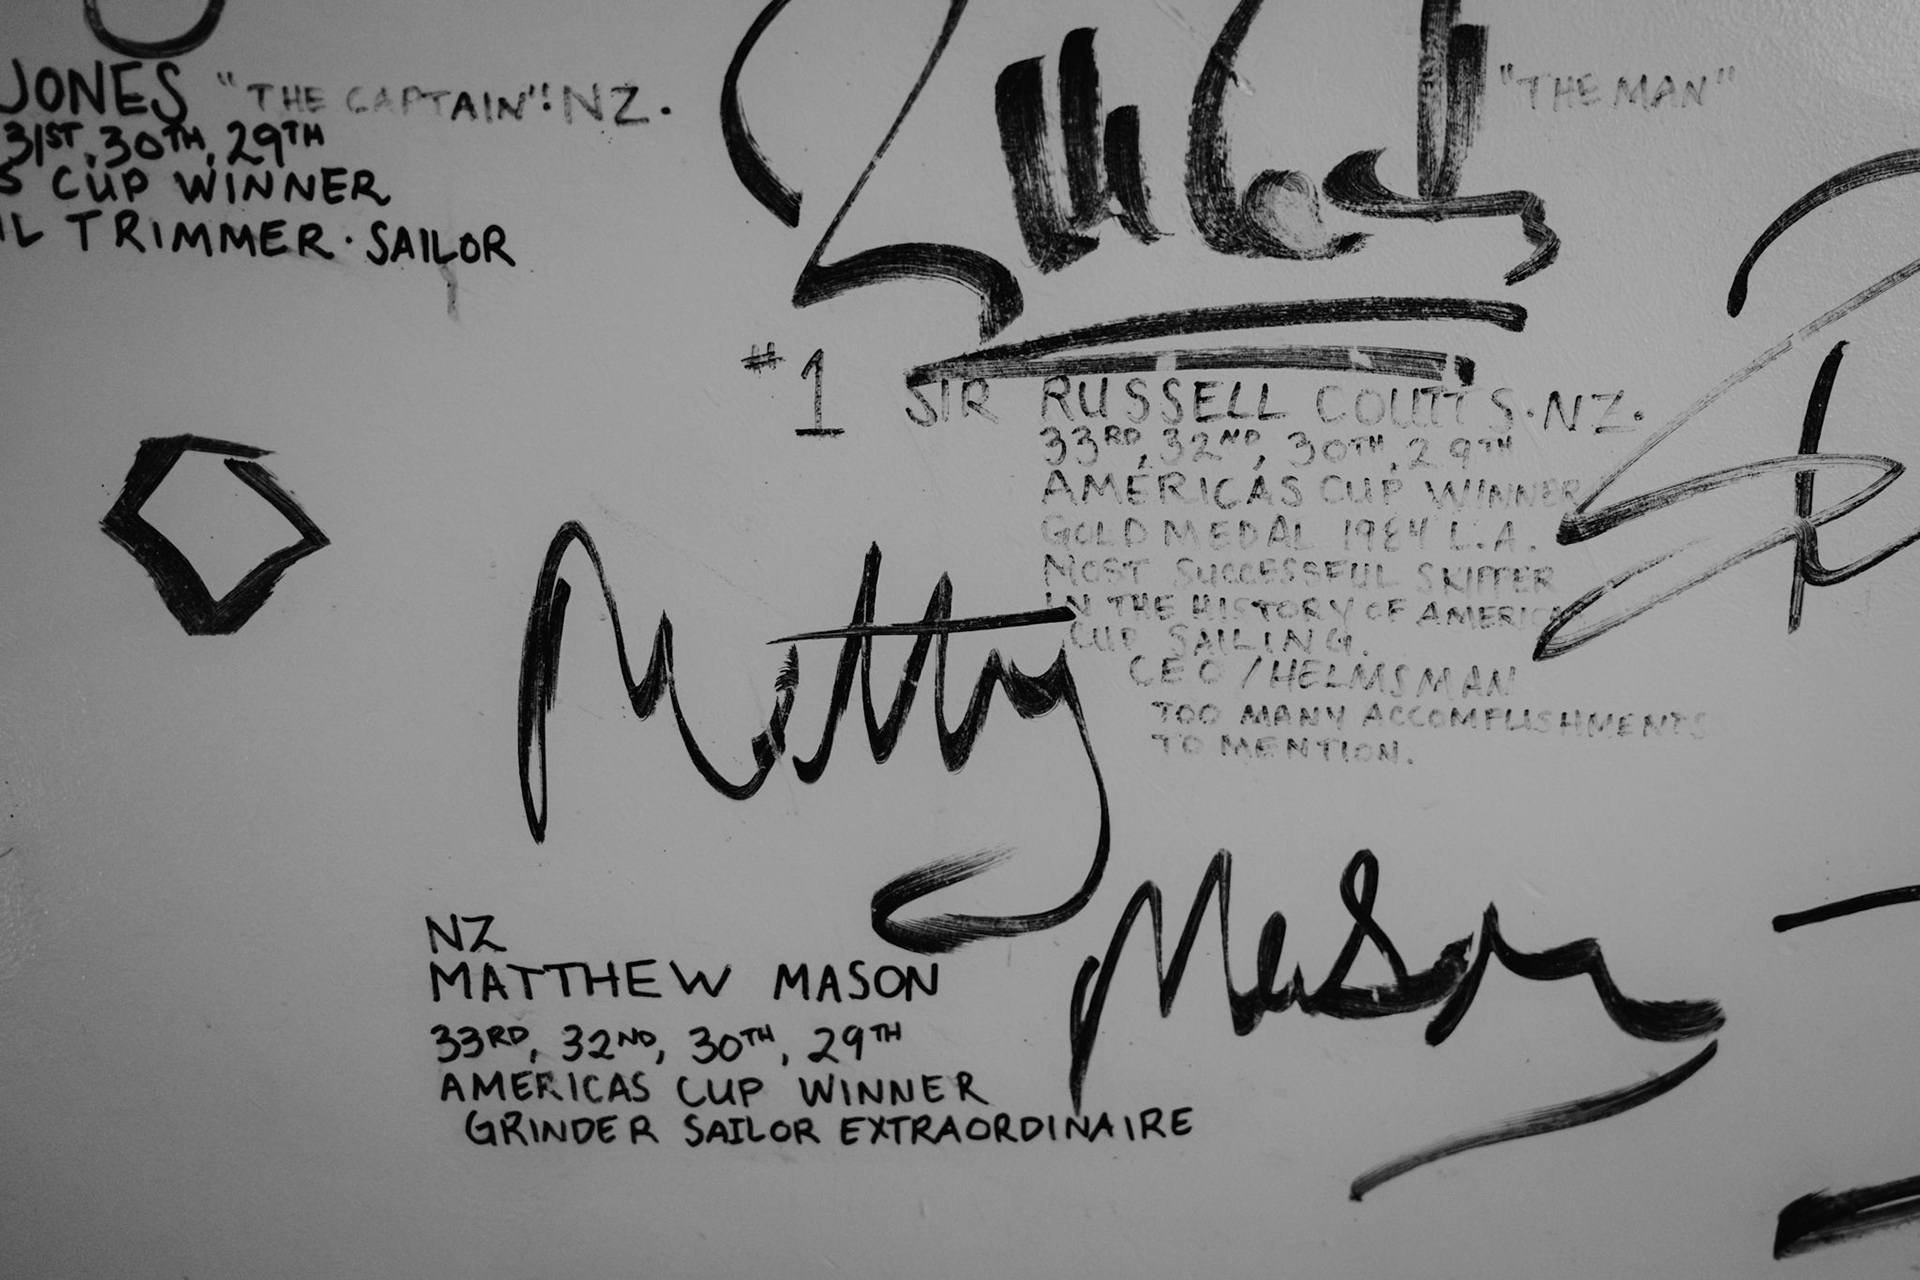 JONES "THE CAPTAIN" NZ.
31ST, 30TH, 29TH
S CUP WINNER
IL TRIMMER · SAILOR
"THE MAN"
#1 SIR RUSSELL COUTTS · NZ.
33RD, 32ND, 30TH, 29TH
AMERICAS CUP WINNER
GOLD MEDAL 1984 L.A.
MOST SUCCESSFUL SKIPPER
IN THE HISTORY OF AMERICA
CUP SAILING.
CEO / HELMSMAN
TOO MANY ACCOMPLISHMENTS
TO MENTION.
Matty
Mason
NZ
MATTHEW MASON
33RD, 32ND, 30TH, 29TH
AMERICAS CUP WINNER
GRINDER SAILOR EXTRAORDINAIRE